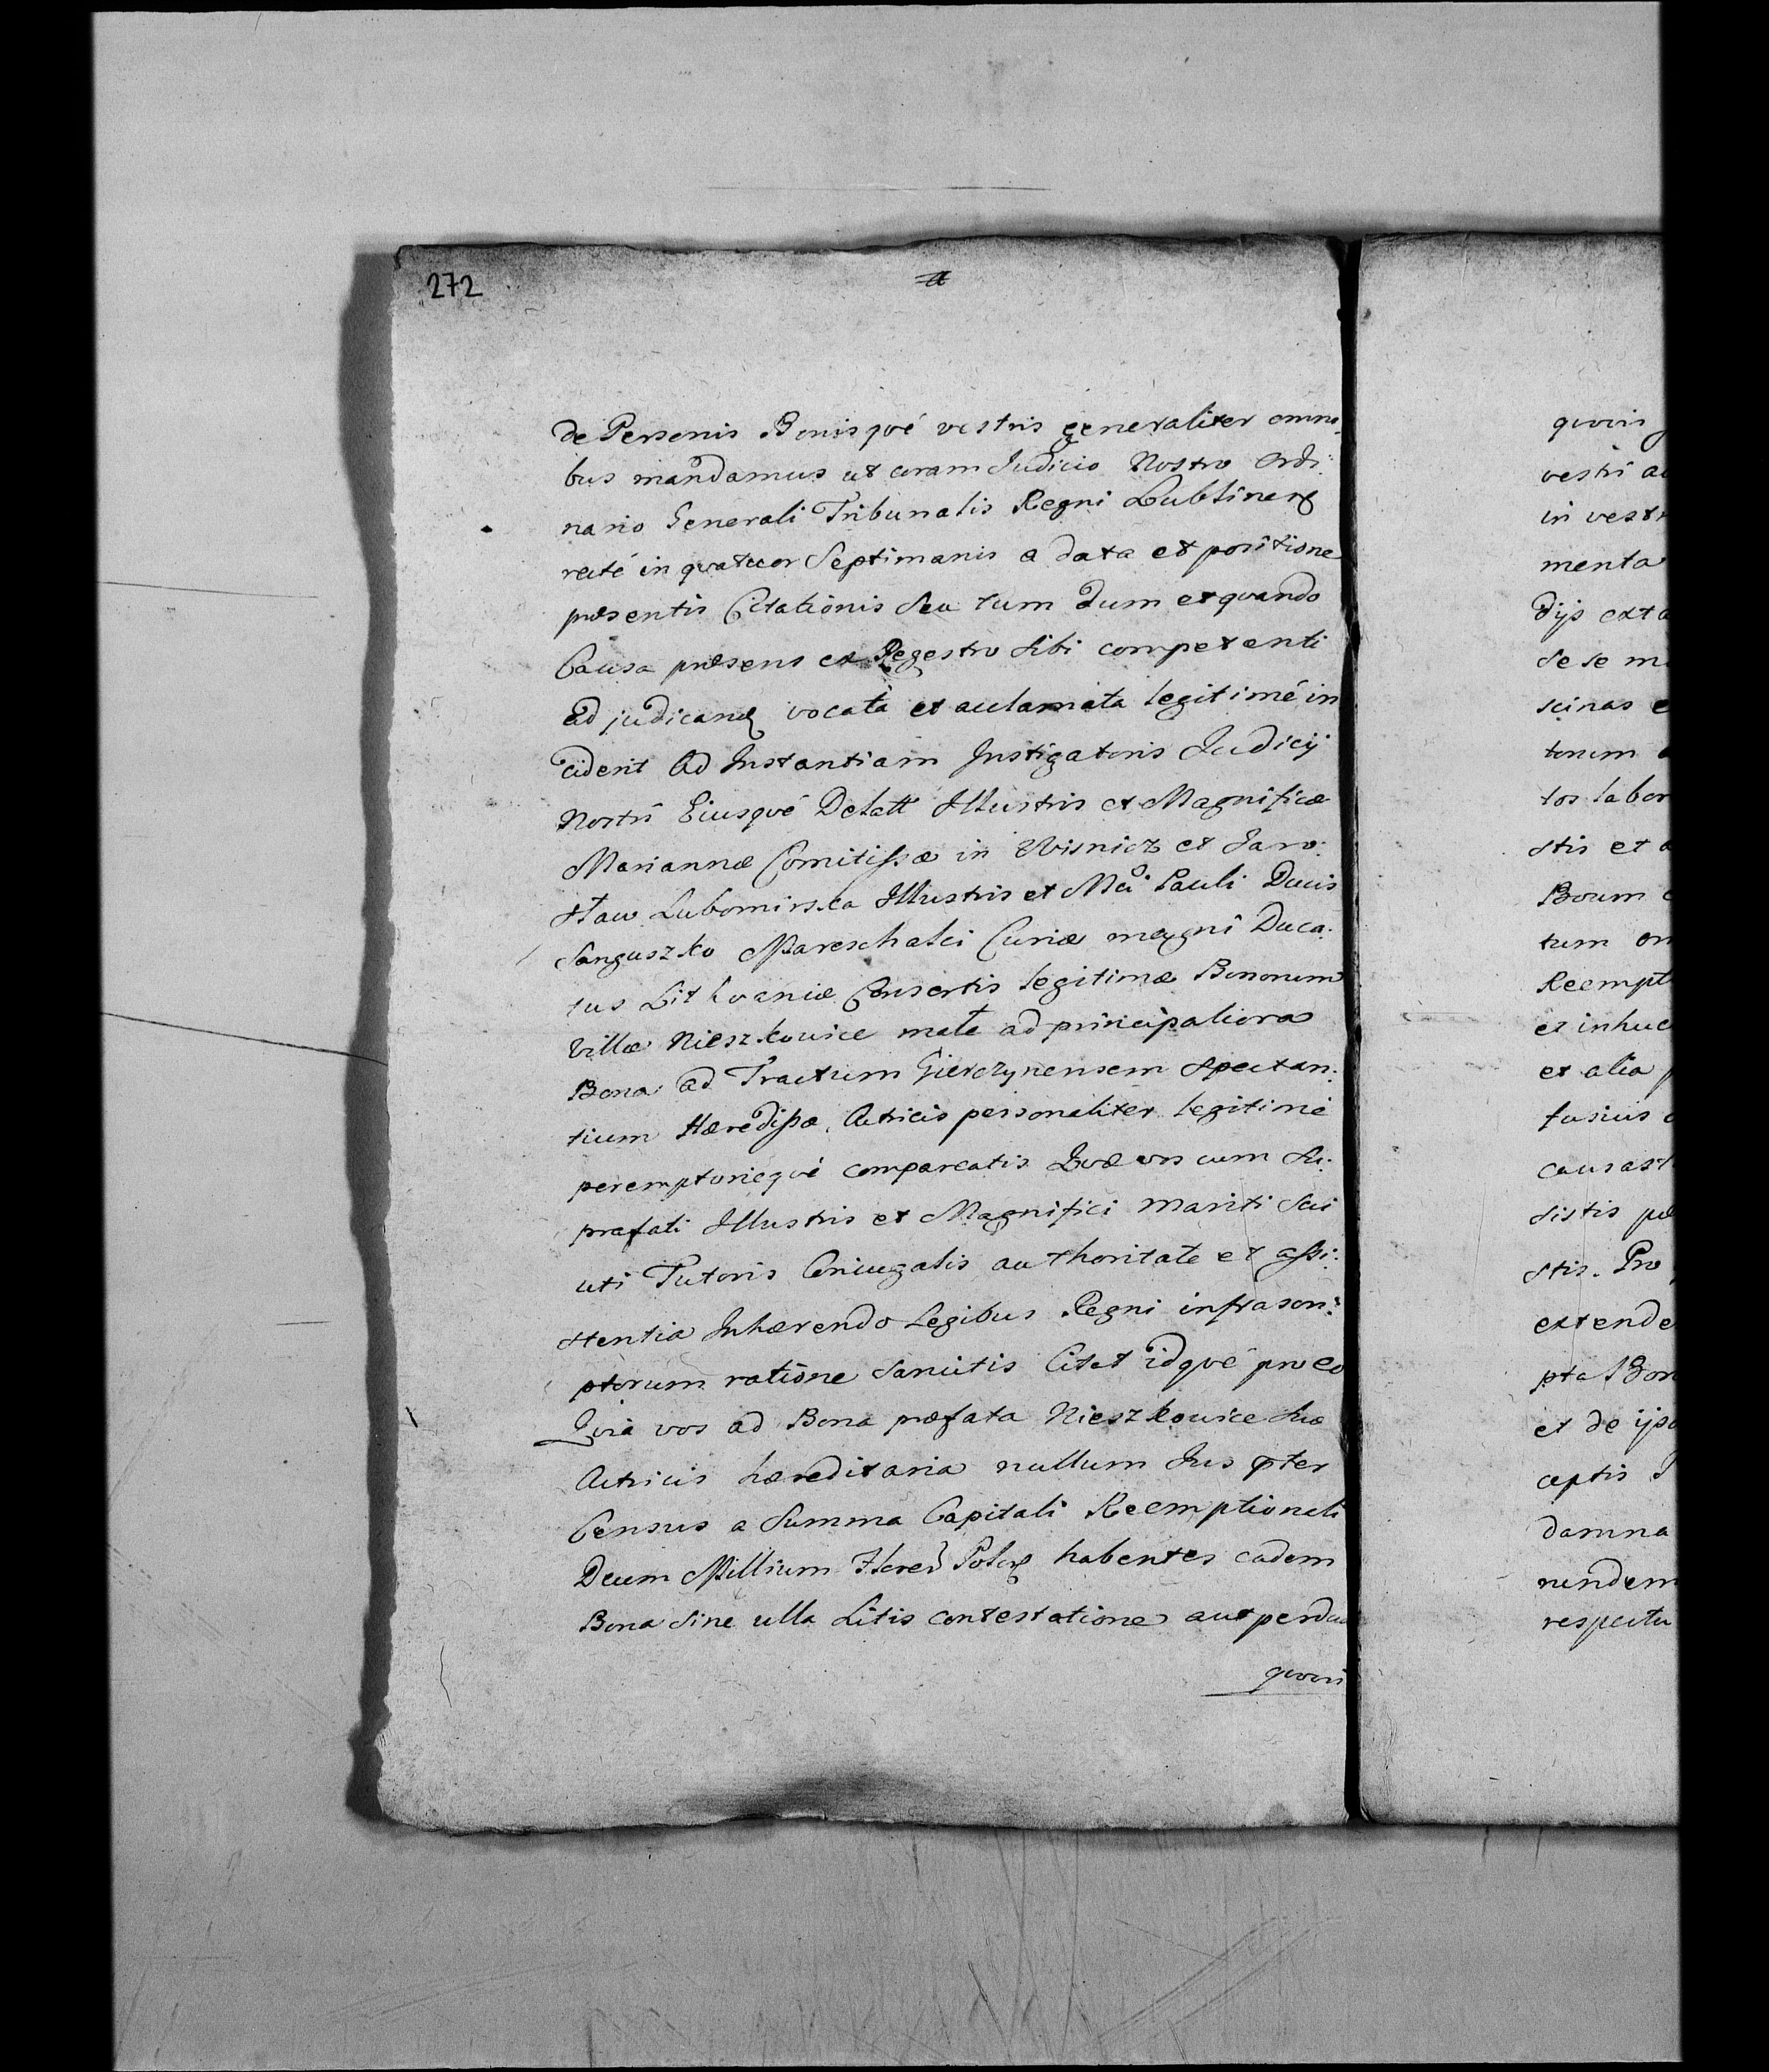 272
de Personis Bonisqvé vestris generaliter omni:
bus mandamus ut coram Judicio Nostro Ordi:
nario Generali Tribunalis Regni Lublinen
recté in qvatuor Septimanis a data et positione
præsentis Citationis Seu tum dum et qvando
Causa præsens ex Regestro Sibi competenti
ad judicand vocata et acclamata legitimé in
ciderit Ad Instantiam Instigatoris Judicij
Nostri Eiusqvé Delatt Illustris et Magnificæ
Mariannæ Comitissæ in Wisnicz et Jaro:
sław Lubomirska Illustris et Mci Pauli Ducis
Sanguszko Mareschalci Curiæ magni Duca:
tus Lithvaniæ Consortis legitimæ Bonorum
Villæ Nieszkowice małe ad principaliora
Bona ad Tractum Gierczynensem Spectan:
tium Hæredissæ, Actricis personaliter legitimé
peremptorieqvé compareatis Qvæ vos cum Su:
prafati Illustris et Magnifici Mariti Sui
uti Tutoris Coniugalis authoritate et assi:
stentia Inhærendo Legibus Regni infrascri:
ptorum ratione Sancitis Citat idqvé pro eo
Qvia vos ad Bona præfata Nieszkowice Suæ
Actricis hæreditaria nullum Jus pter
Census a Summa Capitali Reemptionali
Decem Millium Floren Polon habentes eadem
Bona Sine ulla Litis contestatione aut perdu
qvovis
qvovis
vestri
in vestr
menta
dijs exta
Sese
scinas
torum
tos labor
Stis et
Boum
tum
Reempt
et inhuc
et alia
fusius
causast
Sistis
Stis. Pro
extende
pta Bon
et de ips
ceptis
damna
rundem
respectu